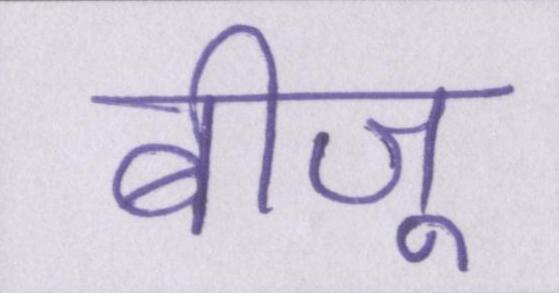 बीजू